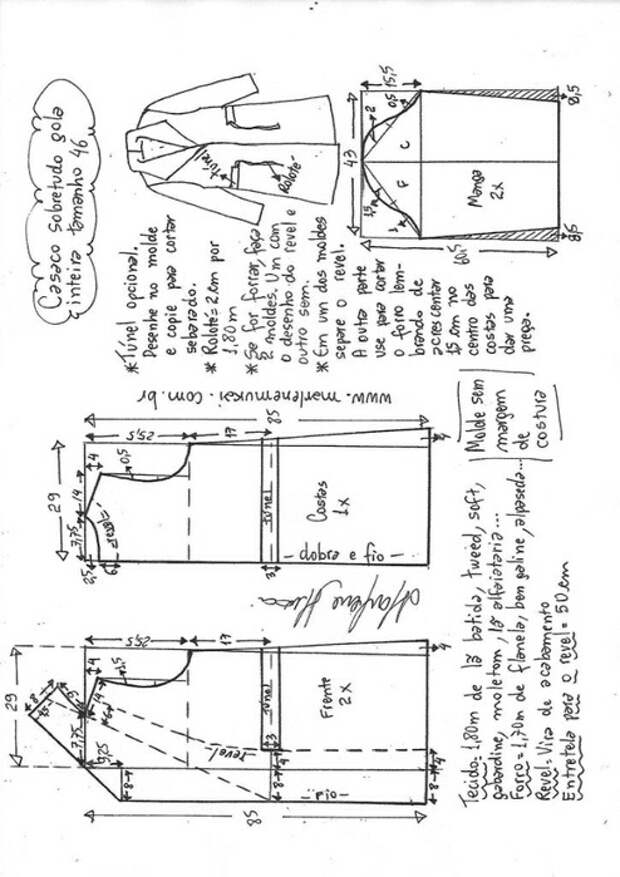 Casaco sobretudo gola
inteira tamanho 46
*Túnel opcional.
Desenhe no molde
e copie para cortar
sebarado.
* Roloté=2cm por
1,80m
*Se for forrar, faça
2 moldes. Um com
o desenho do revel e
outro sem.
*Em um dos moldes
separe o revel.
A outra parte
use para cortar
o forro lem-
brando de
acrescentar
15cm no
centro das
costas para
dar uma
prega.
túnel
Roloté
15,5
43
0,5
2
C
F
1,5
1
Manga
2x
60,5
8,5
8,5
www.marlenemukai.com.br
Molde sem
margem
de
costura
85
25,5
17
29
4
14
0,5
7,75
revel
2,5
6
túnel
Costas
1x
— dobra e fio —
3
4
25,5
17
29
4
14
1,5
9
7,75
9,25
revel
túnel
Frente
2x
3
4
8
8
fio
4
4
8
85
Tecido=1,80m de lã batida, tweed, soft,
gabardine, moletom, lã alfaiataria...
Forro=1,70m de flanela, bengaline,
Revel=Vira de acabamento
Entretela para o revel=50cm